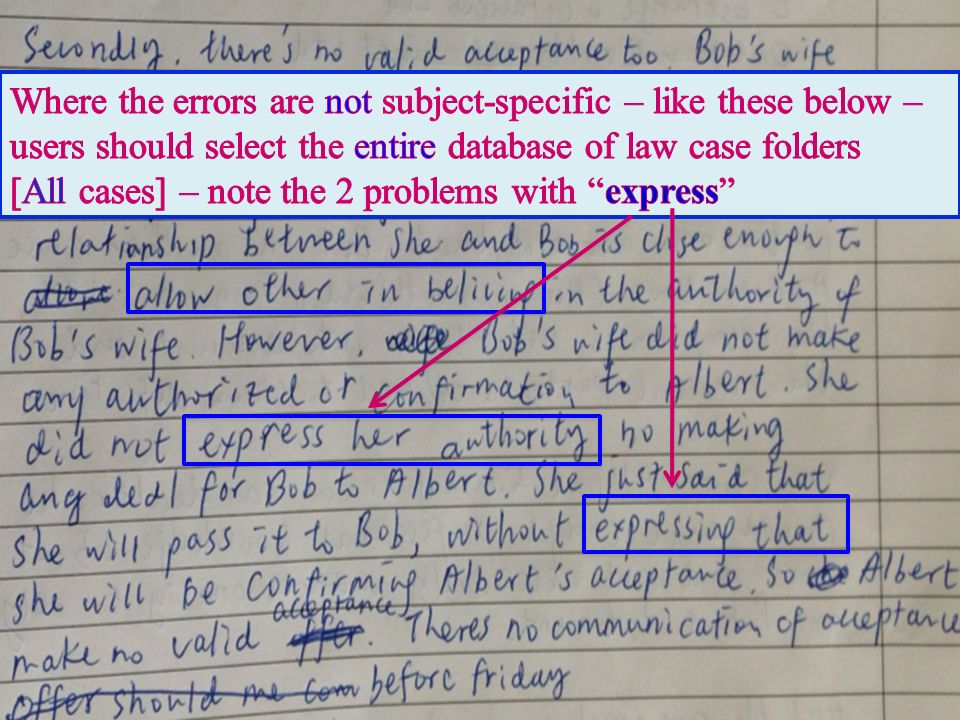 Secondly, there's no valid acceptance too. Bob's wife
Where the errors are not subject-specific – like these below –
users should select the entire database of law case folders
[All cases] – note the 2 problems with “express”
relationship between she and Bob is close enough to
allow other in beliving in the authority of
Bob's wife. However, Bob's wife did not make
any authorized or confirmation to Albert. She
did not express her authority no making
any deal for Bob to Albert. She just said that
she will pass it to Bob, without expressing that
she will be confirming Albert's acceptance. So Albert
acceptance
make no valid offer. Theres no communication of acceptance
offer should me com before friday